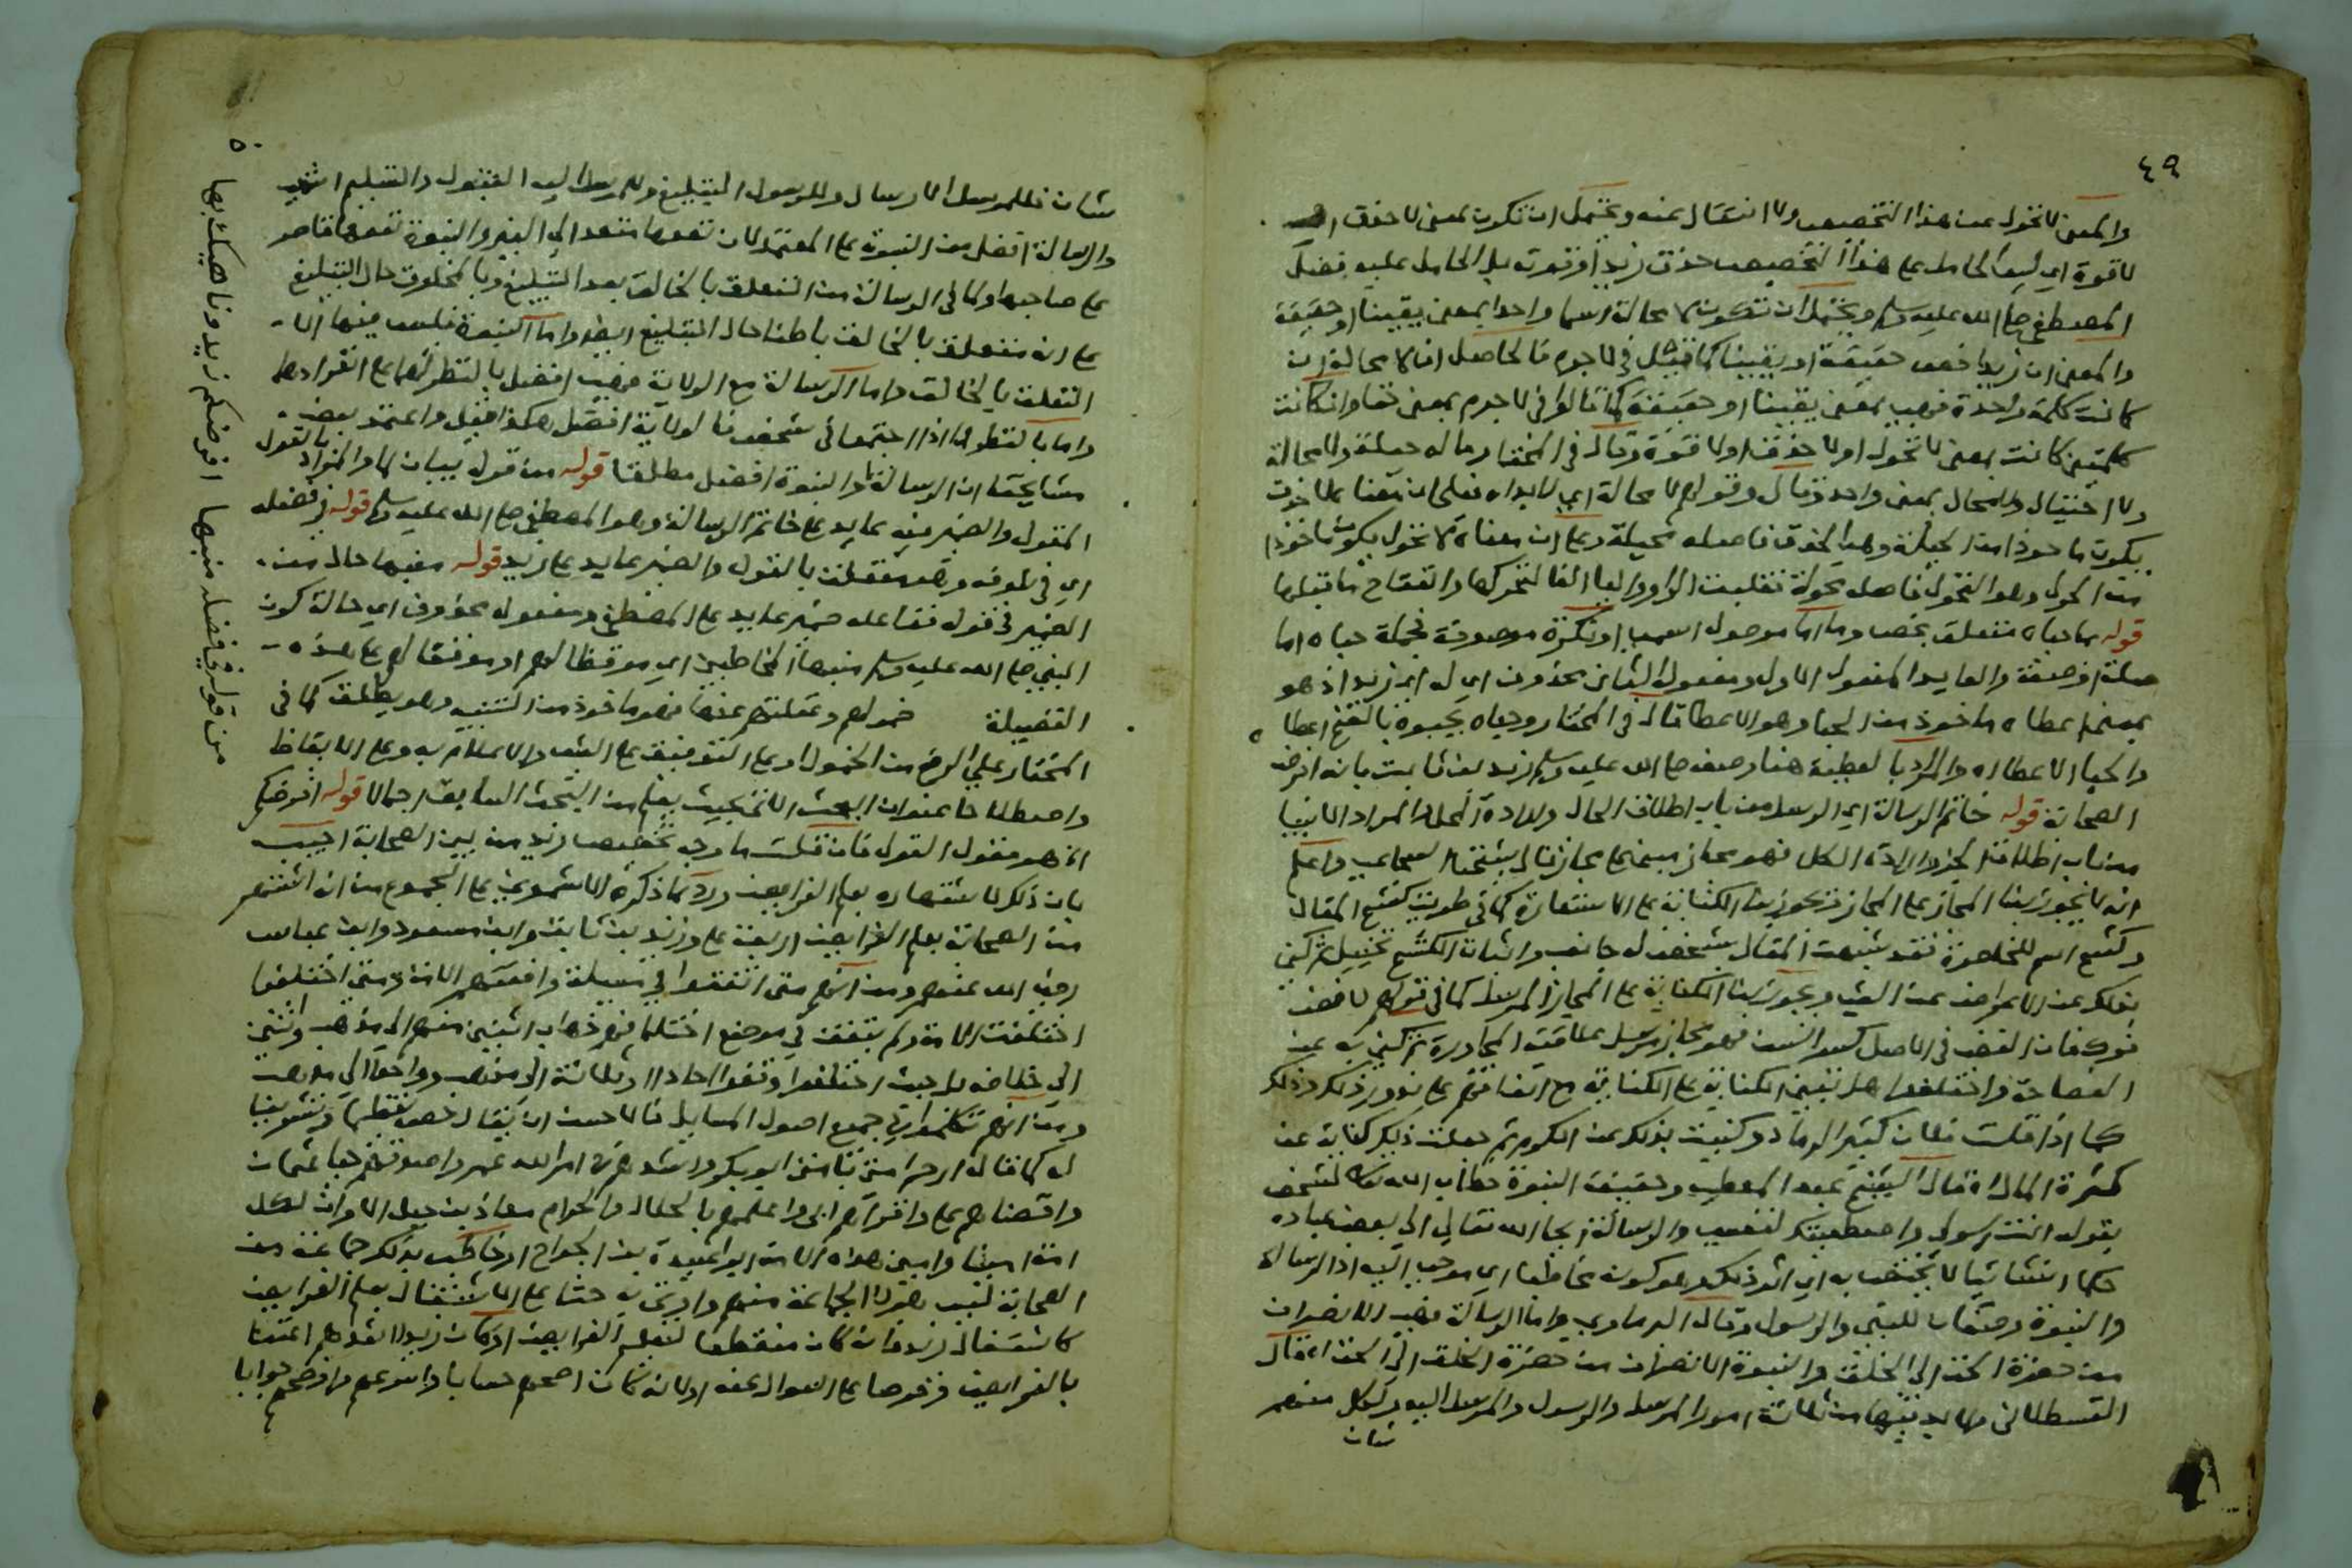 ٤٩
والمعنى لا تحول عن هذا التخصيص ولا انتقال عنه ويحتمل ان تكون بمعنى لا حذق
لا قوة اي ليس الحامل على هذا التخصيص حذق زيد او قوته بل الحامل عليه فضل
المصطفى صلى الله عليه وسلم ويحتمل ان تكون لا محالة اسما واحدا بمعنى يقينا او حقيقة
والمعنى ان زيدا خص حقيقة او يقينا كما قيل في لا جرم فالحاصل ان لا محالة ان
كانت كلمة واحدة فهي بمعنى يقينا او حقيقة كما قالوا في لا جرم بمعنى حقا وان كانت
كلمتين كانت بمعنى لا تحول او لا حذق او لا قوة وقال في المختار وماله حيلة ولا محالة
ولا احتيال ولا محال بمعنى واحد وقال وقولهم لا محالة اي لا بد اه فعلى ان معناها لا حذق
يكون ماخوذا من الحيلة وهي الحذق فاصله محيلة وعلى ان معناه لا تحول يكون ماخوذا
من الحول وهو التحول فاصله محولة فقلبت الواو والياء الفا لتحركها وانفتاح ما قبلها
قوله بما حباه متعلق بخص وما اما موصول اسمي او نكرة موصوفة فجملة حباه اما
صلة او صفة والعايد المفعول الاول ومفعوله الثاني محذوف اي له اي زيد اذ هو
بمعنى اعطاه ماخوذ من الحبا وهو الاعطا قال في المختار وحباه يحبوه بالفتح اعطاه
والحبا الاعطا اه والمراد بالعطية هنا وصفه صلى الله عليه وسلم زيد بن ثابت بانه افرض
الصحابة قوله خاتم الرسالة اي الرسل من باب اطلاق الحال وارادة المحل او المراد الانبيا
من باب اطلاق الجزء وارادة الكل فهو مجاز مبني على مجاز قال شيخنا السجاعي واعلم
انه لا يجوز بنا المجاز على المجاز ويجوز بنا الكناية على الاستعارة كما في طويت كشح المقال
وكشح اسم للخاصرة فقد شبهت المقال بشخص له جانب واثبات الكشح تخييل ثم كني
بذلك عن الاعراض عن الشي ويجوز بنا الكناية على المجاز المرسل كما في قولهم لا فض
فوك فان الفض في الاصل كسر السن فهو مجاز مرسل بعلاقة المجاورة ثم كني به عن
الفصاحة واختلفوا هل تبنى الكناية على الكناية مع اتفاقهم على نوور ذلك وذلك
كما اذا قلت فلان كثير الرماد وكنيت بذلك عن الكرم ثم جعلت ذلك كناية عن
كثرة المال اه قال الشيخ عبد المعطي وحقيقة النبوة خطاب الله تعالى لشخص
بقوله انت رسولي واصطفيتك لنفسي والرسالة ايحا الله تعالى الى بعض عباده
حكما انشائيا لا يختص به اي اثر ذلك وهو كونه مخاطبا اي موحى اليه اذ الرسالة
والنبوة وصفان للنبي والرسول وقال البرماوي واما الرسالة فهي الانصراف
من حضرة الحق الى الخلق والنبوة الانصراف من حضرة الخلق الى الحق اه قال
القسطلاني ولا بد فيها من ثلاثة امور المرسل والرسول والمرسل اليه ولكل منهم
شان
شان فللمرسل الارسال وللرسول التبليغ وللمرسل اليه القبول والتسليم انتهى
والرسالة افضل من النبوة على المعتمد لان نفعها متعد الى الغير والنبوة نفعها قاصر
على صاحبها ولما في الرسالة من التعلق بالخالق بعد التبليغ وبالمخلوق حال التبليغ
على انه متعلق بالخالق باطنا حال التبليغ ايضا واما النبوة فليس فيها الا
التعلق بالخالق واما الرسالة مع الولاية فهي افضل بالنظر لهما على انفرادهما
واما بالنظر لهما اذا اجتمعا في شخص فالولاية افضل هكذا قيل واعتمد بعض
مشايخنا ان الرسالة والنبوة افضل مطلقا قوله من قول بيان لما والمراد بالقول
المقول والضمير فيه عايد على خاتم الرسالة وهو المصطفى صلى الله عليه وسلم قوله في فضله
اي في شرفه وهو متعلق بالقول والضمير عايد على زيد قوله منبها حال من
الضمير في قوله ففاعله ضمير عايد على المصطفى ومفعوله محذوف اي حالة كون
النبي صلى الله عليه وسلم منبها المخاطبين اي موقظا لهم او موقفا لهم على هذه
الفضيلة خمولهم وغفلتهم عنها فهو ماخوذ من التنبيه وهو يطلق كما في
المختار على الرفع من الخمول وعلى التوقيف على الشي والاعلام به وعلى الايقاظ
واصطلاحا عنوان البحث الاتي بحيث يعلم من البحث السابق اجمالا قوله افرضكم
الخ هو مقول القول فان قلت ما وجه تخصيص زيد من بين الصحابة اجيب
بان ذلك لاشتهاره بعلم الفرايض ورد بما ذكره الاشموني على المجموع من ان اشتهر
من الصحابة بعلم الفرايض اربعة علي وزيد بن ثابت وابن مسعود وابن عباس
رضي الله عنهم ومن انهم متى اتفقوا في مسيلة وافقتهم الامة ومتى اختلفوا
اختلفت الامة ولم يتفق في موضع اختلافهم ذهاب اثنين منهم الى مذهب واثنين
الى خلافه بل حيث اختلفوا وقفوا احادا او ثلاثة الى مذهب وواحد الى مذهب
ومن انهم تكلموا في جميع اصول المسايل فالاحسن ان يقال خص تعظيما وتشريفا
له كما قال ارحم امتي بامتي ابو بكر واشدهم في امر الله عمر واصدقهم حيا عثمان
واقضاهم علي واقراهم ابي واعلمهم بالحلال والحرام معاذ بن جبل الا وان لكل
امة امينا وامين هذه الامة ابو عبيدة بن الجراح او خاطب بذلك جماعة من
الصحابة ليس بقوله الجماعة منهم واتى به حثا على الاشتغال بعلم الفرايض
كاشتغال زيد فانه كان منقطعا لتعلم الفرايض او كان زيد اشدهم اعتنا
بالفرايض وحرصا على السوال عنه او لانه كان اصحهم حسابا واسرعهم واوضحهم جوابا
٥٠
من قوله في فضله منبها افرضكم زيد وناهيك بها